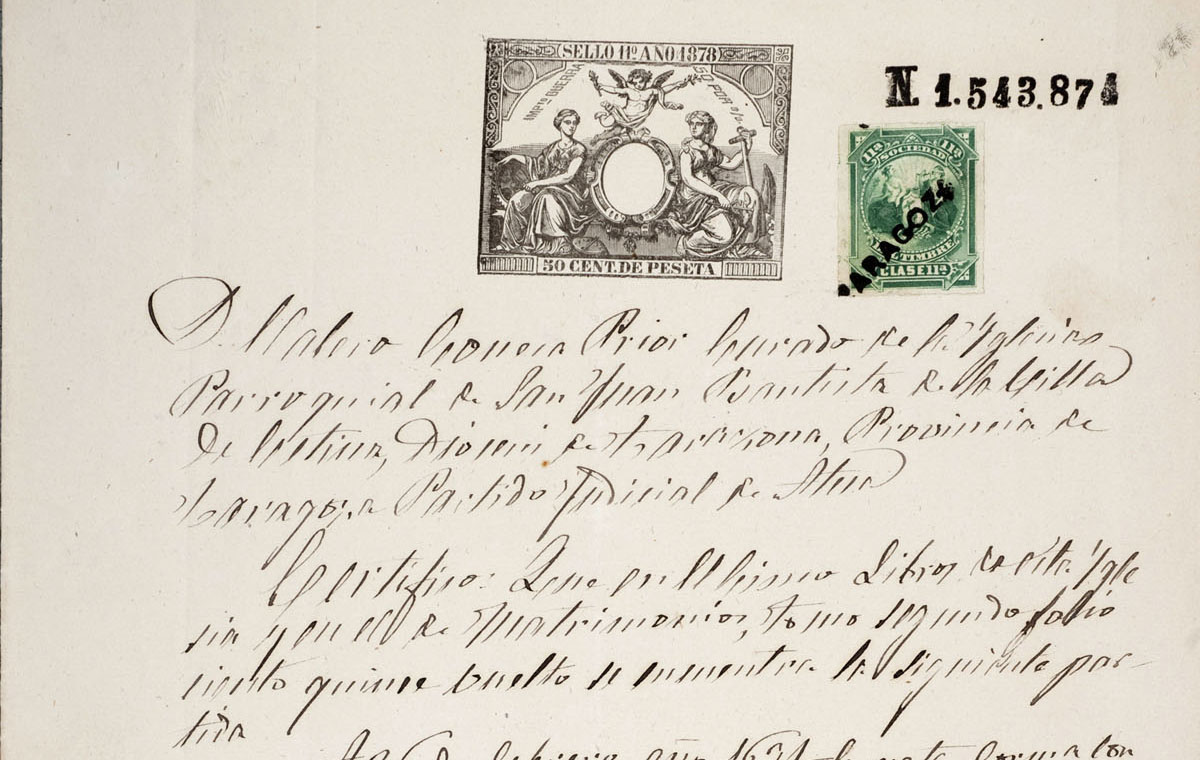 SELLO 11º AÑO 1878
50 CENT. DE PESETA
N. 1.543.874
11ª SOCIEDAD 11ª
DEL TIMBRE
CLASE 11ª
ZARAGOZA
D. Valero Prior Curado de la Yglesia
Parroquial de San Juan Bautista de la Villa
de Cetina, Diocesis de Tarazona, Provincia de
Zaragoza Partido Judicial de Ateca
Certifico: Que en el Libro de esta Ygle
sia y en el de Matrimonios, tomo segundo folio
ciento quince vuelto se encuentra la siguiente par-
tida
febrero año